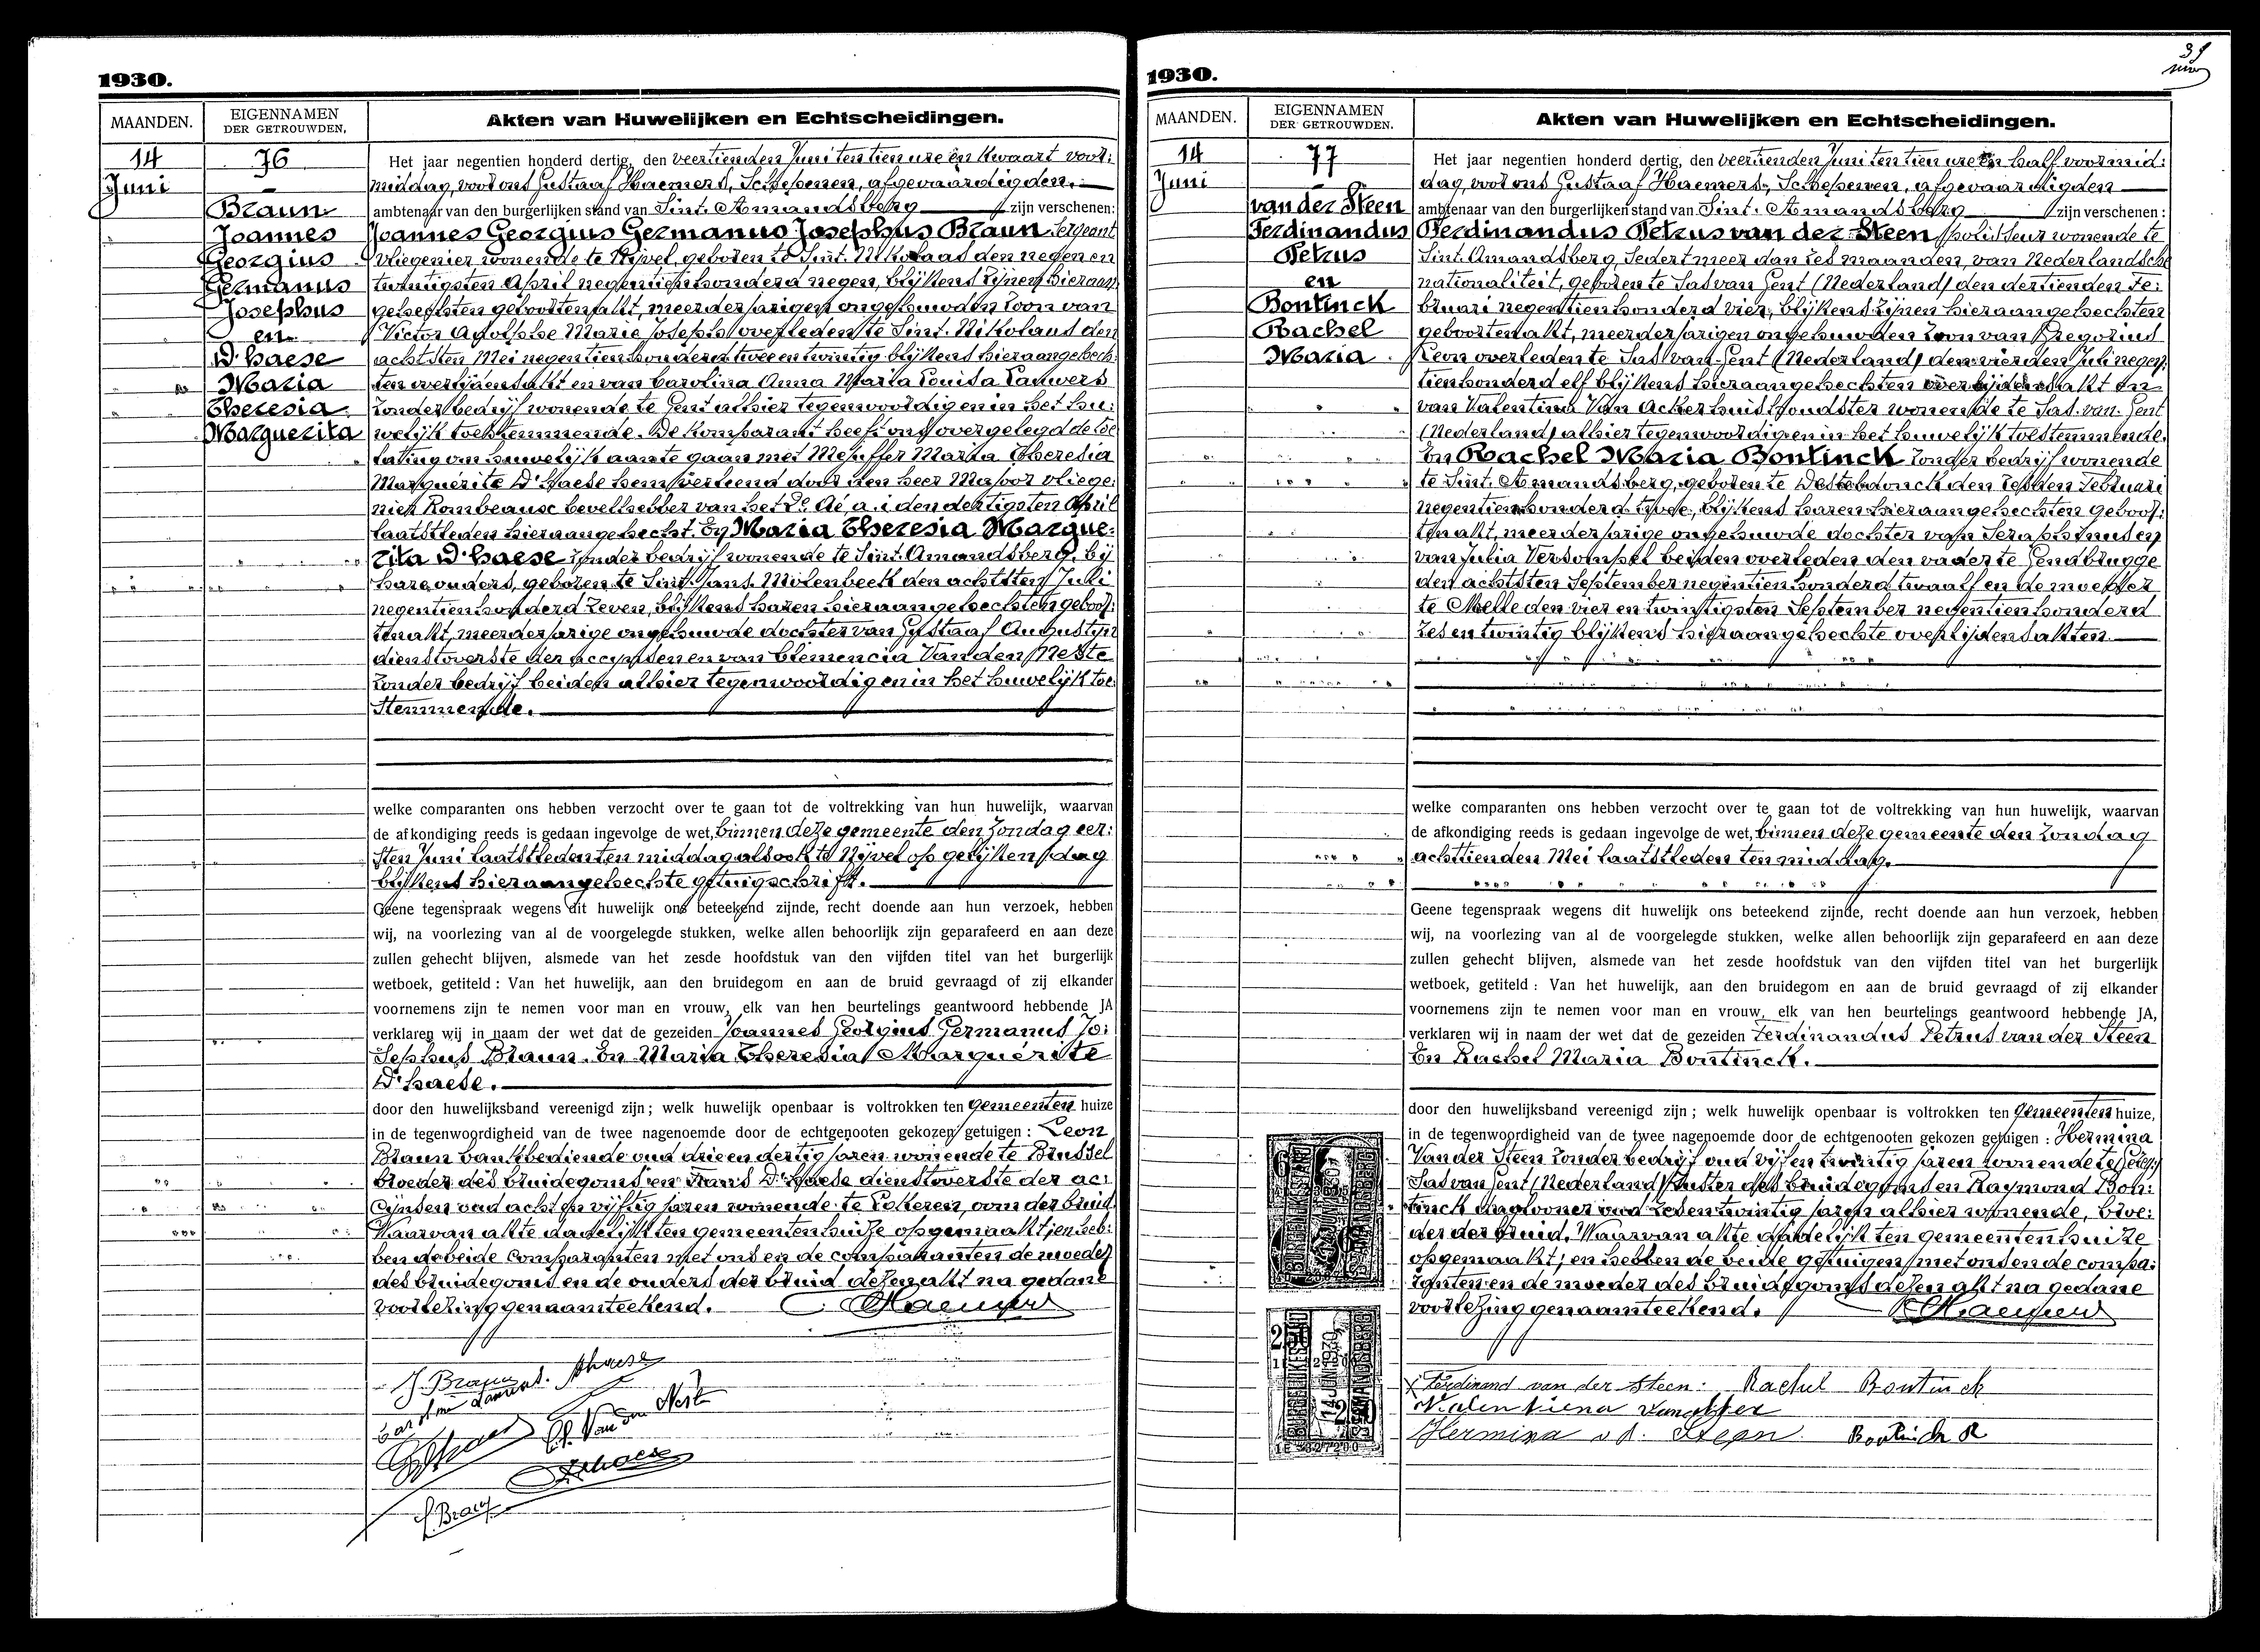 1930.
MAANDEN.
EIGENNAMEN
DER GETROUWDEN,
Akten van Huwelijken en Echtscheidingen.
14
Juni
76
Braun
Joannes
Georgius
Germanus
Josephus
en
D'haese
Maria
Theresia
Marguerita
Het jaar negentien honderd dertig, den veertienden Juni ten tien ure en kwaart voor:
middag, voor ons Gustaaf Haemers, Schepenen, afgevaardigden,
ambtenaar van den burgerlijken stand van Sint. Amandsberg zijn verschenen:
Joannes Georgius Germanus Josephus Braun, Sergeant
vliegenier wonende te Nijvel, geboren te Sint. Nikolaas den negen en
twintigsten April negentienhonderd negen, blijkens zijnen hieraan
gehechten geboortenakt, meerderjarigen ongehuwden zoon van
Victor Adolphe Marie Joseph overleden te Sint. Nikolaas den
achtsten Mei negentienhonderd twee en twintig blijkens hieraangehech:
ten overlijdensakt en van Carolina Anna Maria Louisa Lauwers
zonder bedrijf wonende te Gent alhier tegenwoordig en in het hu:
welijk toestemmende. De komparant heeft ons overgelegd de toe
lating om huwelijk aan te gaan met Mejuffer Maria Theresia
Marguérite D'haese hem verleend door den heer Majoor vliege:
nier Rombeaux bevelhebber van het 2e Aé a.i den dertigsten April
laatstleden hieraangehecht. En Maria Theresia Margue:
rita D'haese zonder bedrijf wonende te Sint. Amandsberg, bij
hare ouders, geboren te Sint. Jans. Molenbeek den achtsten Juli
negentienhonderd zeven, blijkens haren hieraangehechten geboor:
tenakt, meerderjarige ongehuwde dochter van Gustaaf Augustyn
dienstoverste der accynsen en van Clemencia Van den Neste
zonder bedrijf beiden alhier tegenwoordig en in het huwelijk toe:
stemmende.
welke comparanten ons hebben verzocht over te gaan tot de voltrekking van hun huwelijk, waarvan
de afkondiging reeds is gedaan ingevolge de wet, binnen deze gemeente den Zondag eer:
sten Juni laatstleden ten middag alsook te Nijvel op gelijken dag
blijkens hieraangehechte getuigschrift.
Geene tegenspraak wegens dit huwelijk ons beteekend zijnde, recht doende aan hun verzoek, hebben
wij, na voorlezing van al de voorgelegde stukken, welke allen behoorlijk zijn geparafeerd en aan deze
zullen gehecht blijven, alsmede van het zesde hoofdstuk van den vijfden titel van het burgerlijk
wetboek, getiteld : Van het huwelijk, aan den bruidegom en aan de bruid gevraagd of zij elkander
voornemens zijn te nemen voor man en vrouw, elk van hen beurtelings geantwoord hebbende JA
verklaren wij in naam der wet dat de gezeiden Joannes Georgius Germanus Jo:
sephus Braun. En Maria Theresia Marguérite
D'haese.
door den huwelijksband vereenigd zijn ; welk huwelijk openbaar is voltrokken ten gemeenten huize
in de tegenwoordigheid van de twee nagenoemde door de echtgenooten gekozen getuigen : Leon
Braun bankbediende oud drie en dertig jaren wonende te Brussel
broeder des bruidegoms en Frans D'haese dienstoverste der ac:
cijnsen oud acht en vijftig jaren wonende te Lokeren, oom der bruid
Waarvan akte dadelijk ten gemeentenhuize opgemaakt; en heb:
ben de beide comparanten met ons en de comparanten de moeder
des bruidegoms en de ouders der bruid dezen akt na gedane
voorlezing genaamteekend. Haemers
J. Braun. Dhaese
C. Van den Neste
Dhaese
L. Braun
1930.
MAANDEN.
EIGENNAMEN
DER GETROUWDEN.
Akten van Huwelijken en Echtscheidingen.
14
Juni
77
van der Steen
Ferdinandus
Petrus
en
Bontinck
Rachel
Maria
Het jaar negentien honderd dertig, den veertienden Juni ten tien ure en half voormid:
dag, voor ons Gustaaf Haemers, Schepenen, afgevaardigden
ambtenaar van den burgerlijken stand van Sint. Amandsberg zijn verschenen :
Ferdinandus Petrus van der Steen, polisseur wonende te
Sint. Amandsberg, sedert meer dan zes maanden, van Nederlandsche
nationaliteit, geboren te Sas van Gent (Nederland) den dertienden Fe:
bruari negentienhonderd vier, blijkens zijnen hieraangehechten
geboortenakt, meerderjarigen ongehuwden zoon van Gregorius
Leon overleden te Sas van Gent (Nederland) den vierden Juli negen:
tienhonderd elf blijkens hieraangehechten overlijdensakt en
van Valentina Van Acker huishoudster wonende te Sas. van. Gent
(Nederland) alhier tegenwoordig en in het huwelijk toestemmende.
En Rachel Maria Bontinck zonder bedrijf wonende
te Sint. Amandsberg, geboren te Destelbonck den zesden Februari
negentienhonderd twee, blijkens haren hieraangehechten geboor:
tenakt, meerderjarige ongehuwde dochter van Seraphinus en
van Julia Versompel beiden overleden den vader te Gendbrugge
den achtsten September negentienhonderd twaalf en de moeder
te Melle den vier en twintigsten September negentienhonderd
zes en twintig blijkens hieraangehechte overlijdensakten.
welke comparanten ons hebben verzocht over te gaan tot de voltrekking van hun huwelijk, waarvan
de afkondiging reeds is gedaan ingevolge de wet, binnen deze gemeente den Zondag
achttienden Mei laatstleden ten middag.
Geene tegenspraak wegens dit huwelijk ons beteekend zijnde, recht doende aan hun verzoek, hebben
wij, na voorlezing van al de voorgelegde stukken, welke allen behoorlijk zijn geparafeerd en aan deze
zullen gehecht blijven, alsmede van het zesde hoofdstuk van den vijfden titel van het burgerlijk
wetboek, getiteld : Van het huwelijk, aan den bruidegom en aan de bruid gevraagd of zij elkander
voornemens zijn te nemen voor man en vrouw, elk van hen beurtelings geantwoord hebbende JA,
verklaren wij in naam der wet dat de gezeiden Ferdinandus Petrus van der Steen
En Rachel Maria Bontinck.
door den huwelijksband vereenigd zijn ; welk huwelijk openbaar is voltrokken ten gemeenten huize,
in de tegenwoordigheid van de twee nagenoemde door de echtgenooten gekozen getuigen : Hermina
Van der Steen zonder bedrijf oud vijf en twintig jaren wonende te
Sas van Gent (Nederland) zuster des bruidegoms en Raymond Bon:
tinck daglooner oud zes en twintig jaren alhier wonende, broe:
der der bruid. Waarvan akte dadelijk ten gemeentenhuize
opgemaakt; en hebben de beide getuigen met ons en de compa:
ranten en de moeder des bruidegoms dezen akt na gedane
voorlezing genaamteekend. Haemers
Ferdinand van der Steen. Rachel Bontinck
Valentiena van Akker
Hermina v d. Steen Bontinck R